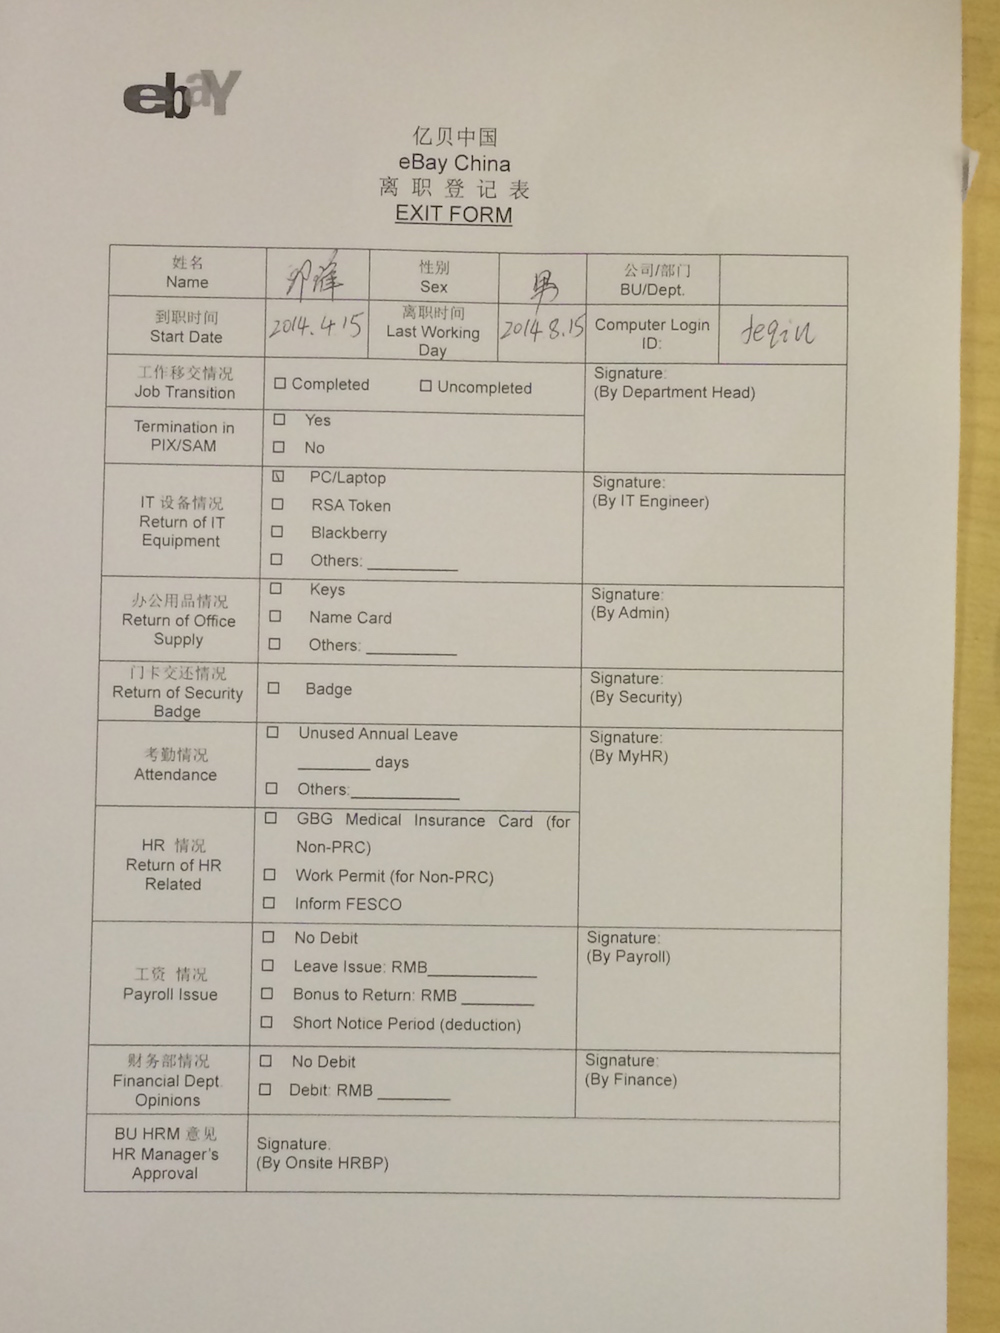 ebay
亿贝中国
eBay China
离 职 登 记 表
EXIT FORM
姓名
Name
性别
Sex
男
公司/部门
BU/Dept.
到职时间
Start Date
2014.4.15
离职时间
Last Working
Day
2014.8.15
Computer Login
ID:
工作移交情况
Job Transition
Completed
Uncompleted
Signature:
(By Department Head)
Termination in
PIX/SAM
Yes
No
IT 设备情况
Return of IT
Equipment
PC/Laptop
RSA Token
Blackberry
Others: ________
Signature:
(By IT Engineer)
办公用品情况
Return of Office
Supply
Keys
Name Card
Others: ________
Signature:
(By Admin)
门卡交还情况
Return of Security
Badge
Badge
Signature:
(By Security)
考勤情况
Attendance
Unused Annual Leave
________ days
Others:________
Signature:
(By MyHR)
HR 情况
Return of HR
Related
GBG Medical Insurance Card (for
Non-PRC)
Work Permit (for Non-PRC)
Inform FESCO
工资 情况
Payroll Issue
No Debit
Leave Issue: RMB________
Bonus to Return: RMB ________
Short Notice Period (deduction)
Signature:
(By Payroll)
财务部情况
Financial Dept.
Opinions
No Debit
Debit: RMB ________
Signature:
(By Finance)
BU HRM 意见
HR Manager's
Approval
Signature:
(By Onsite HRBP)